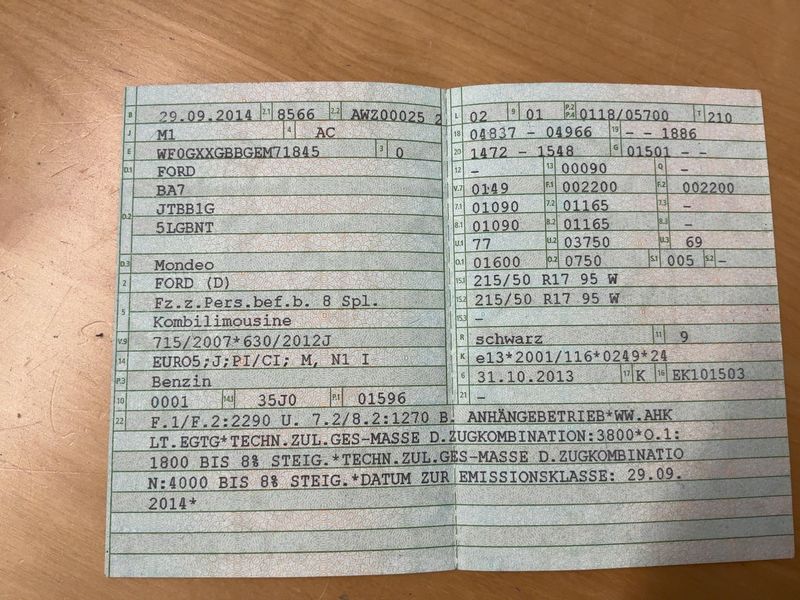 B 29.09.2014 2.1 8566 2.2 AWZ00025 2
J M1 4 AC
E WF0GXXGBBGEM71845 3 0
D.1 FORD
BA7
D.2 JTBB1G
5LGBNT
D.3 Mondeo
2 FORD (D)
5 Fz.z.Pers.bef.b. 8 Spl.
Kombilimousine
V.9 715/2007*630/2012J
14 EURO5;J;PI/CI; M, N1 I
P.3 Benzin
10 0001 14.1 35J0 P.1 01596
L 02 9 01 P.2 P.4 0118/05700 T 210
18 04837 - 04966 19 - - 1886
20 1472 - 1548 G 01501 - -
12 - 13 00090 Q -
V.7 0149 F.1 002200 F.2 002200
7.1 01090 7.2 01165 7.3 -
8.1 01090 8.2 01165 8.3 -
U.1 77 U.2 03750 U.3 69
O.1 01600 O.2 0750 S.1 005 S.2 -
15.1 215/50 R17 95 W
15.2 215/50 R17 95 W
15.3 -
R schwarz 11 9
K e13*2001/116*0249*24
6 31.10.2013 17 K 16 EK101503
21 -
22 F.1/F.2:2290 U. 7.2/8.2:1270 B. ANHÄNGEBETRIEB*WW.AHK
LT.EGTG*TECHN.ZUL.GES-MASSE D.ZUGKOMBINATION:3800*O.1:
1800 BIS 8% STEIG.*TECHN.ZUL.GES-MASSE D.ZUGKOMBINATIO
N:4000 BIS 8% STEIG.*DATUM ZUR EMISSIONSKLASSE: 29.09.
2014*